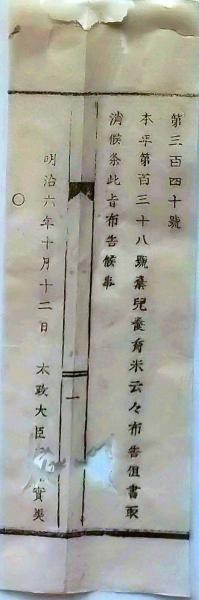 第三百四十號
本年第百三十八號棄兒養育米云々布告但書取
消候条此旨布告候事
一
明治六年十月十二日 太政大臣 實美
〇